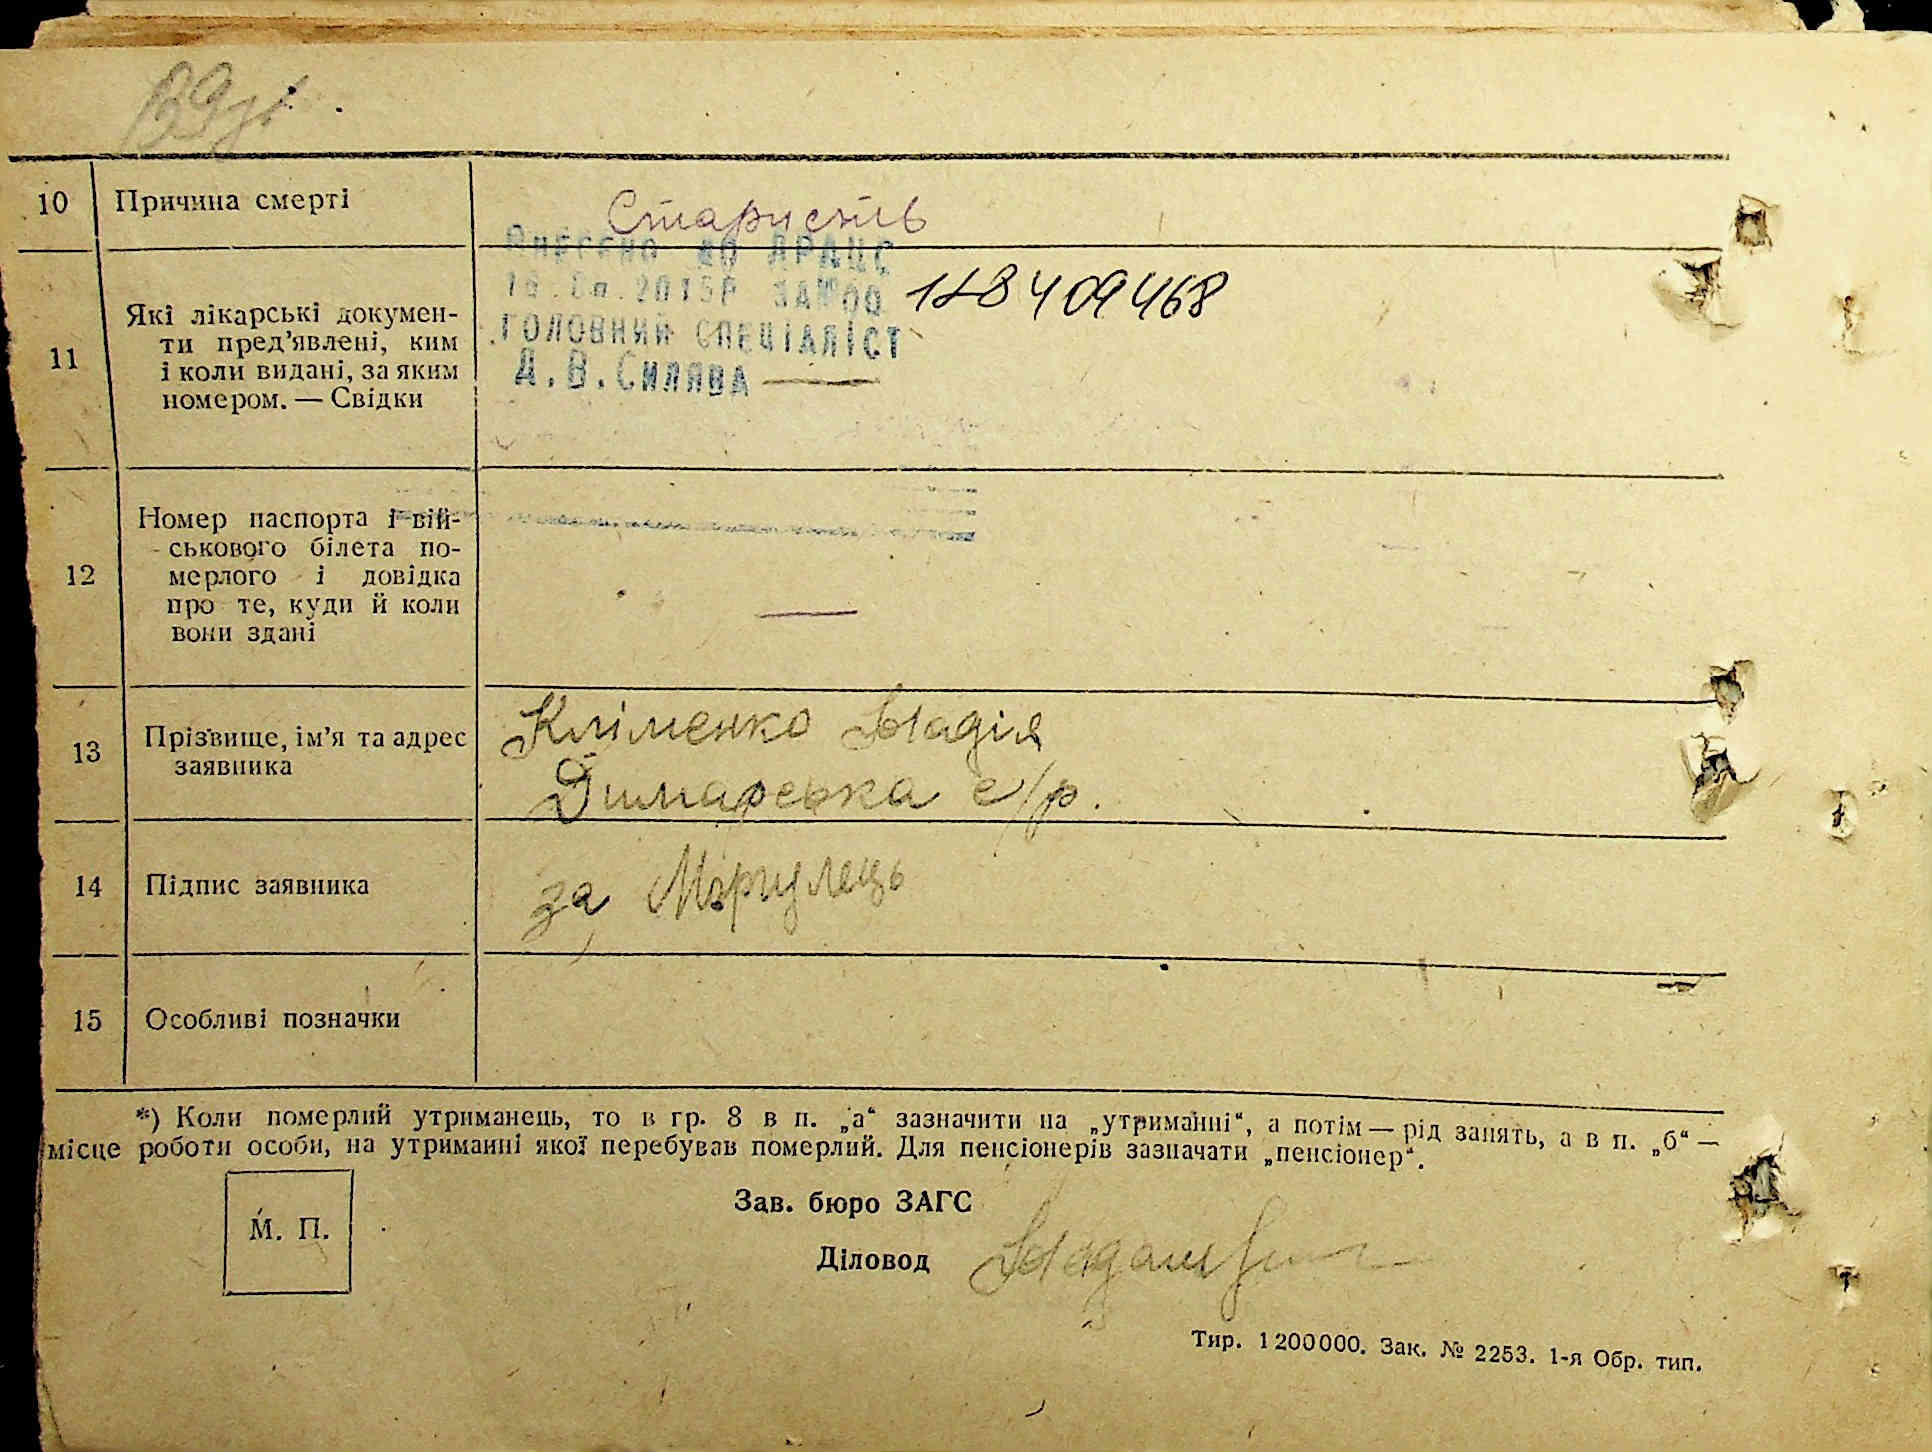 10 Причина смерті Старість
Внесено до ДРАЦС
ЗА №00 188409468
ГОЛОВНИЙ СПЕЦІАЛІСТ
Д.В.Силява
11 Які лікарські докумен-
ти пред’явлені, ким
і коли видані, за яким
номером. — Свідки
12 Номер паспорта і вій-
ськового білета по-
мерлого і довідка
про те, куди й коли
вони здані
13 Прізвище, ім’я та адрес
заявника
Кліменко Надія
Димарська с/р.
14 Підпис заявника за
15 Особливі позначки
*) Коли померлий утриманець, то в гр. 8 в п. „а“ зазначити на „утриманні“, а потім — рід занять, а в п. „б“ —
місце роботи особи, на утриманні якої перебував померлий. Для пенсіонерів зазначати „пенсіонер“.
М. П.
Зав. бюро ЗАГС
Діловод
Тир. 1200000. Зак. № 2253. 1-я Обр. тип.